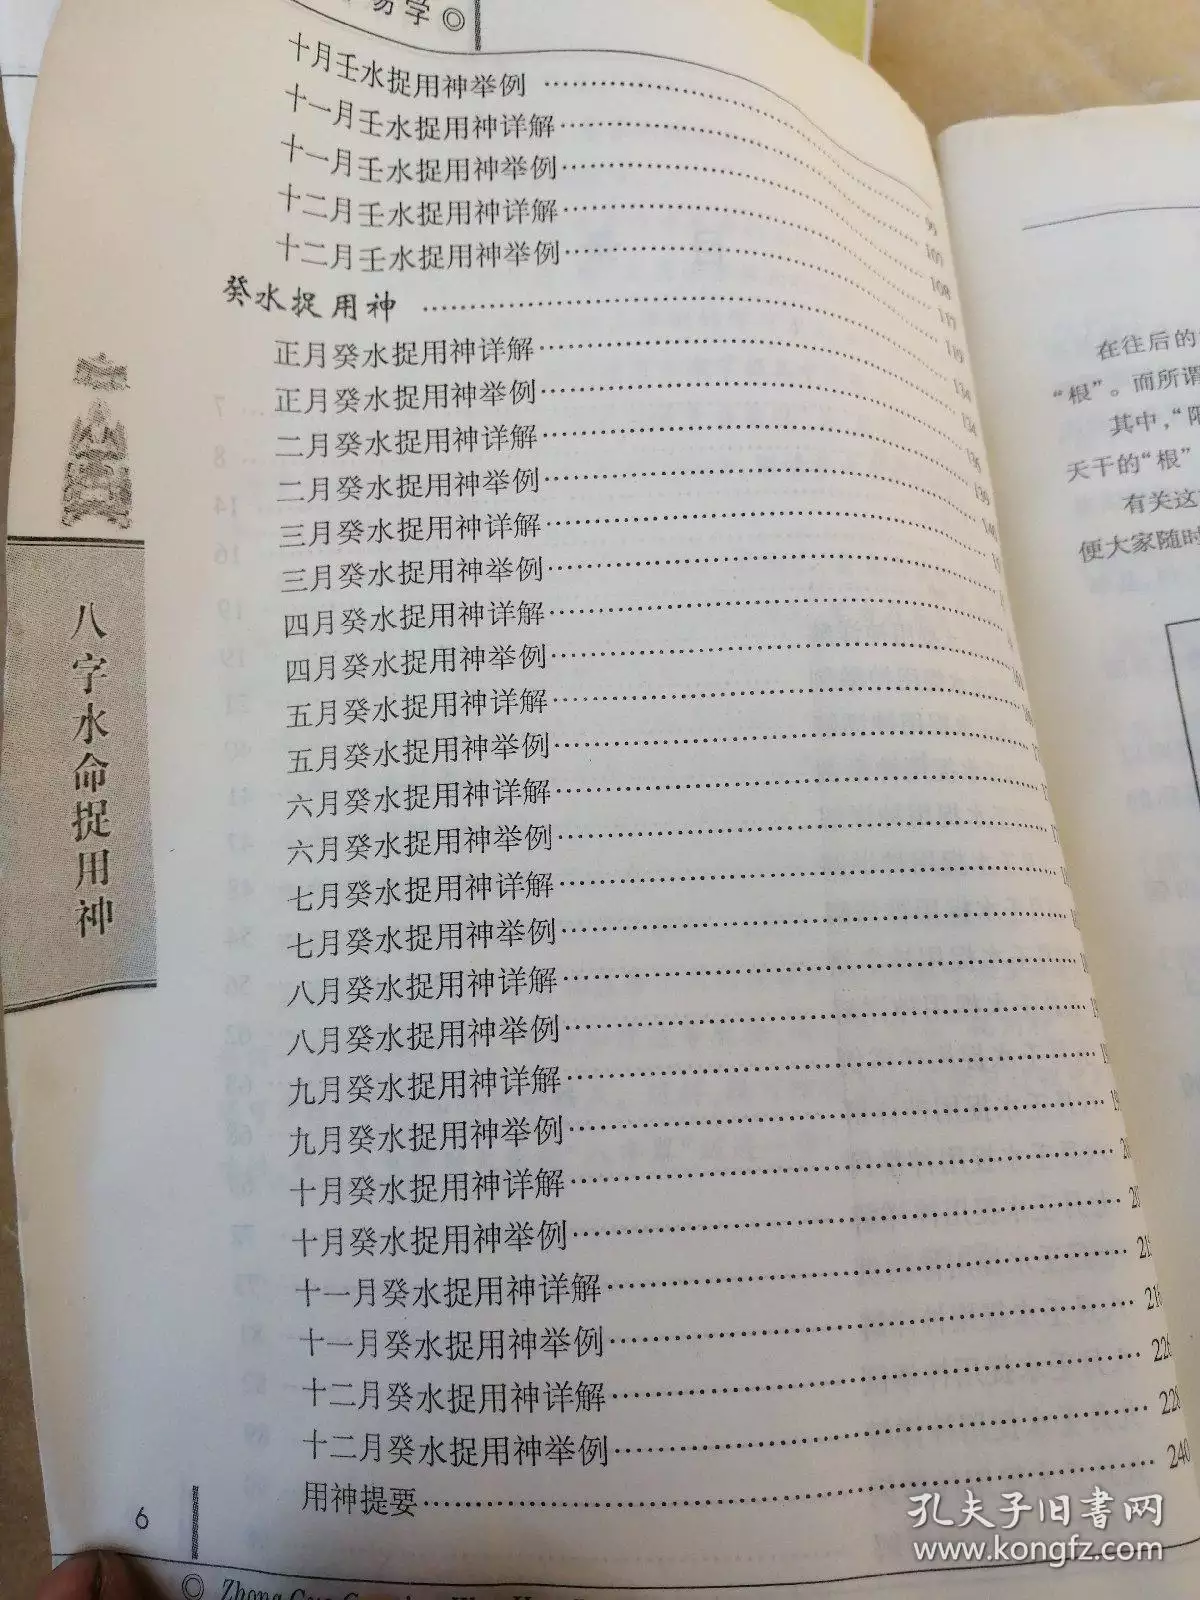 易学◎
十月壬水捉用神举例……95
十一月壬水捉用神详解……107
十一月壬水捉用神举例……108
十二月壬水捉用神详解……117
十二月壬水捉用神举例……119
癸水捉用神……134
正月癸水捉用神详解……134
正月癸水捉用神举例……136
二月癸水捉用神详解……139
二月癸水捉用神举例……140
三月癸水捉用神详解
三月癸水捉用神举例
四月癸水捉用神详解
四月癸水捉用神举例
五月癸水捉用神详解
五月癸水捉用神举例
六月癸水捉用神详解
六月癸水捉用神举例
七月癸水捉用神详解
七月癸水捉用神举例
八月癸水捉用神详解
八月癸水捉用神举例
九月癸水捉用神详解
九月癸水捉用神举例
十月癸水捉用神详解
十月癸水捉用神举例
十一月癸水捉用神详解
十一月癸水捉用神举例……216
十二月癸水捉用神详解……226
十二月癸水捉用神举例……228
用神提要……240
八字水命捉用神
6
在往后的
“根”。而所谓
其中，“阳
天干的“根”
有关这
便大家随时
孔夫子旧书网
www.kongfz.com